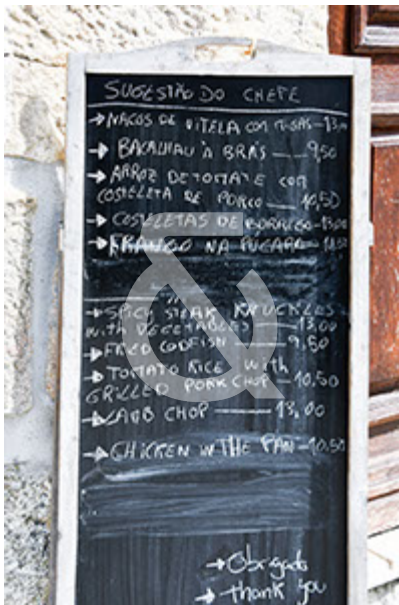 SUGESTÃO DO CHEFE
→ NACOS DE VITELA COM MIGAS-13,00
→ BACALHAU À BRÁS — 9,50
→ ARROZ DE TOMATE COM
COSTELETA DE PORCO — 10,50
→ COSTELETAS DE BORREGO-13,00
→ FRANGO NA PÚCARA - 10,50
→ SPICY STEAK KNUCKLES
WITH VEGETABLES — 13,00
→ FRIED CODFISH — 9,50
→ TOMATO RICE WITH
GRILLED PORK CHOP — 10,50
→ LAMB CHOP — 13,00
→ CHICKEN IN THE PAN-10,50
→ Obrigado
→ thank you